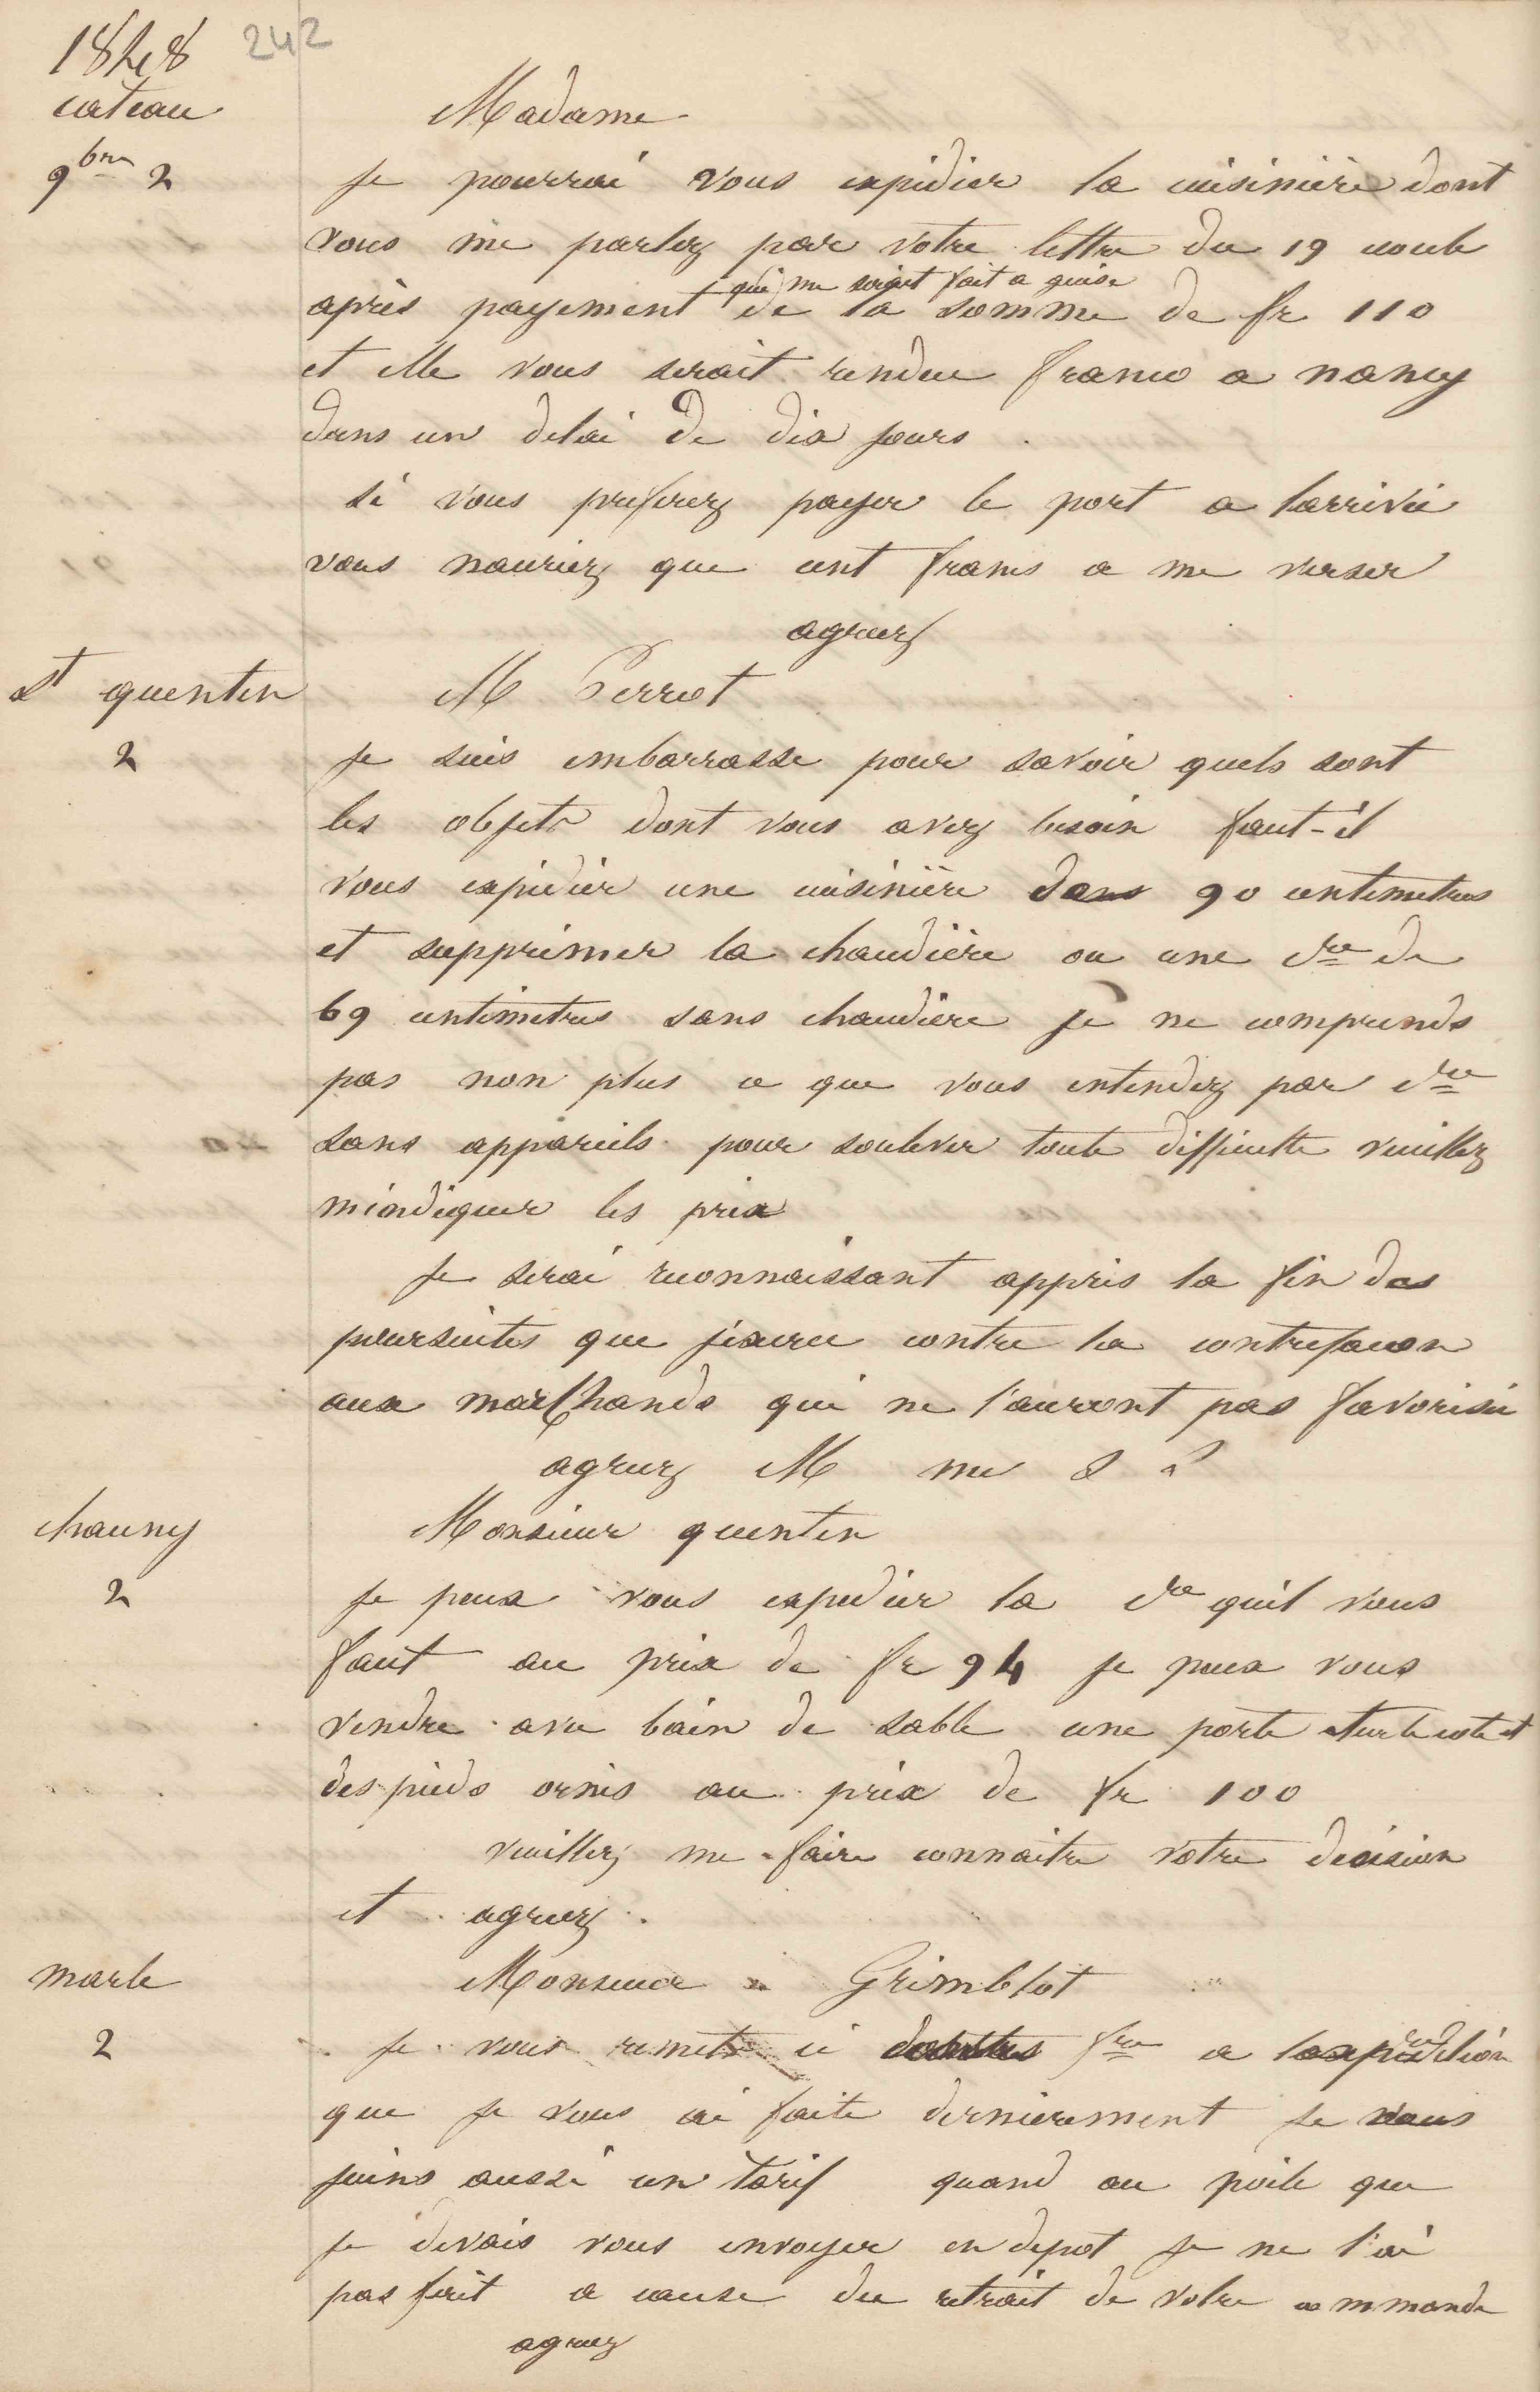 1848 242
cateau
Madame
9bre 2
je pourrai vous expidier la cuisinière dont
vous me parlez par votre lettre du 19 écoule
qui me soient fait a guise
après payement de la somme de fr 110
et elle vous serait rendue franco a nancy
dans un delai de dix jours
si vous preferez payer le port a larrivée
vous nauriez que cent francs a me verser
agreez
St quentin
M Perrot
2
je suis embarrasse pour savoir quels sont
les objets dont vous avez besoin faut-il
vous expidier une cuisinière dans 90 centimetres
et supprimer la chaudière ou une dre de
69 centimetres sans chaudière je ne comprends
pas non plus ce que vous entendez par dre
sans appareils pour soulever toute difficulte veuillez
mindiquer les prix
je serai reconnaissant appris la fin des
poursuites que jexerce contre la contrefacon
aux marchands qui ne l'auront pas favorisée
agreez M me S
chauny
Monsieur quentin
2
je peux vous expedier la dre quil vous
faut au prix de fr 94 je peux vous
vendre avec bain de sable une porte sur le cote et
des pieds ornés au prix de fr 100
veuillez me faire connaitre votre decision
et agreez
marle
Monsieur Grimblot
2
je vous remets ci fre a lexpedition
que je vous ai faite dernierement je vous
joins aussi un tarif quand au poile que
je devais vous envoyer en depot je ne l'ai
pas fait a cause du retrait de votre commande
agreez